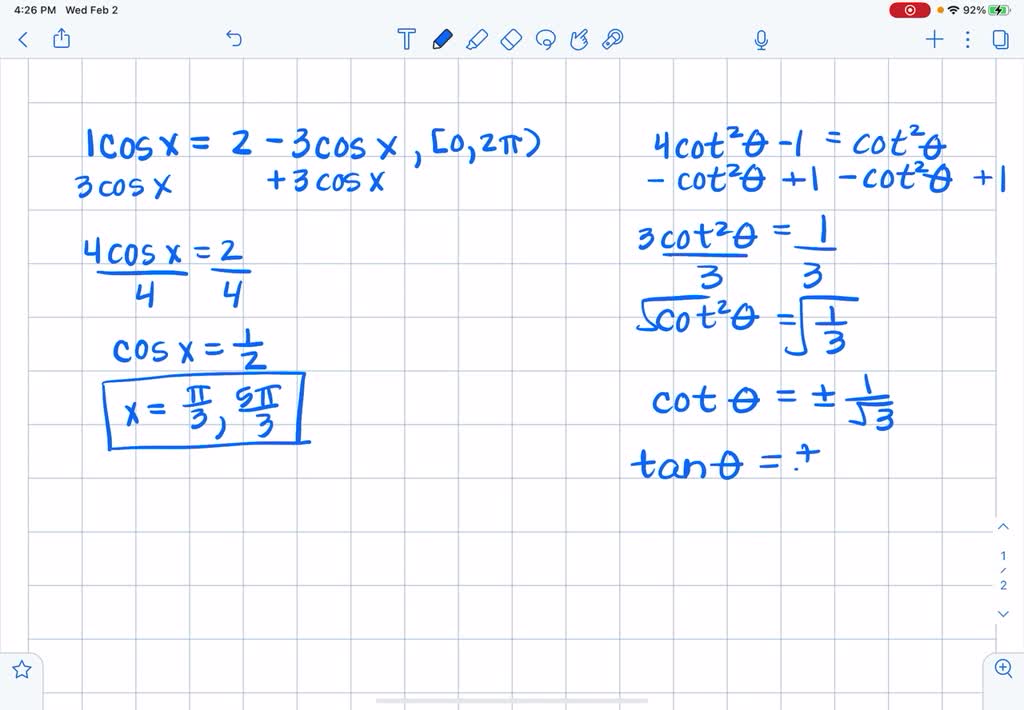 4:26 PM Wed Feb 2
92%
T
1cosx = 2 - 3cosx, [0,2π)
3cosx +3cosx
4cosx = 2
4 4
cosx = 1/2
x = π/3, 5π/3
4cot²θ - 1 = cot²θ
- cot²θ +1 - cot²θ +1
3cot²θ = 1
3 3
√cot²θ = √1/3
cot θ = ± 1/√3
tanθ = +
1
/
2